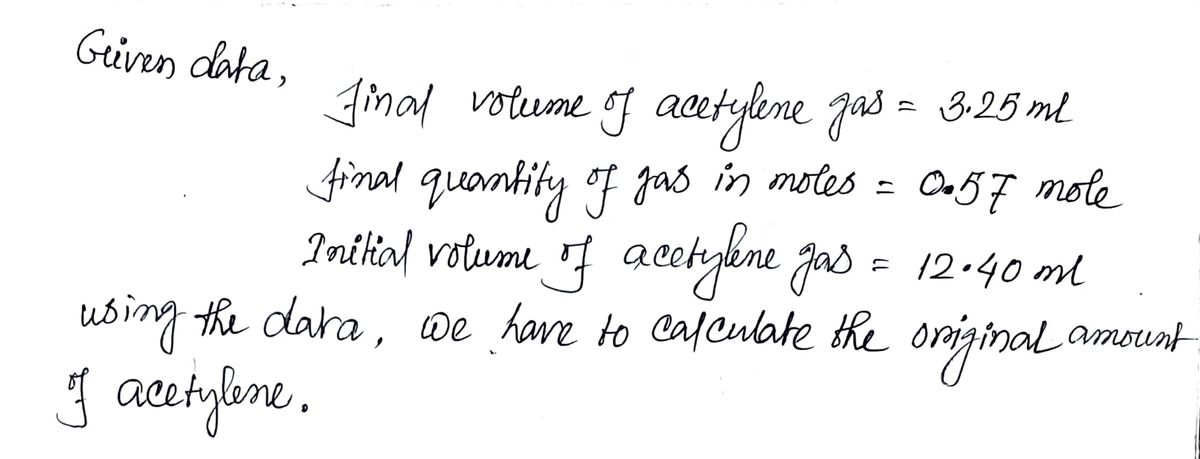 Given data,
final volume of acetylene gas = 3.25 ml
final quantity of gas in moles = 0.57 mole
Initial volume of acetylene gas = 12.40 ml
using the data, we have to calculate the original amount
of acetylene.